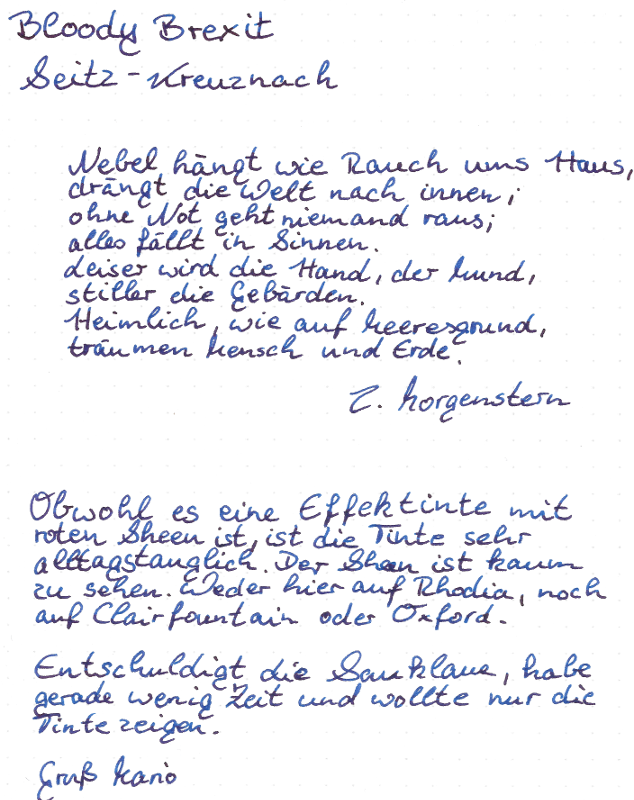 Bloody Brexit
Seitz-Kreuznach
Nebel hängt wie Rauch ums Haus,
drängt die Welt nach innen;
ohne Not geht niemand raus;
alles fällt in Sinnen.
Leiser wird die Hand, der Mund,
stiller die Gebärden.
Heimlich, wie auf Meeresgrund,
träumen Mensch und Erde.
C. Morgenstern
Obwohl es eine Effektinte mit
roten Sheen ist, ist die Tinte sehr
alltagstauglich. Der Sheen ist kaum
zu sehen. Weder hier auf Rhodia, noch
auf Clairfountain oder Oxford.
Entschuldigt die Sauklaue, habe
gerade wenig Zeit und wollte nur die
Tinte zeigen.
Gruß Mario